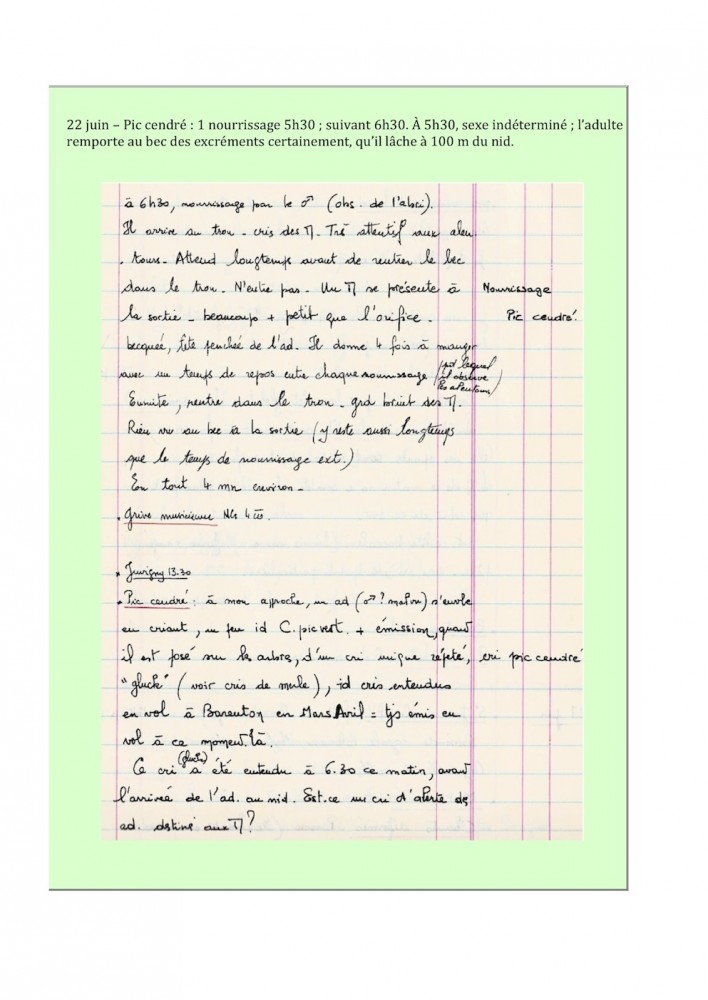 22 juin – Pic cendré : 1 nourrissage 5h30 ; suivant 6h30. À 5h30, sexe indéterminé ; l’adulte
remporte au bec des excréments certainement, qu’il lâche à 100 m du nid.
à 6h30, nourrissage par le ♂ (obs. de l'abri).
Il arrive au trou - cris des Π. Très attentif aux alen
. tours. Attend longtemps avant de rentrer le bec
dans le trou. N'entre pas. Un Π se présente à Nourrissage
la sortie - beaucoup + petit que l'orifice. Pic cendré.
becquée, tête penchée de l'ad. Il donne 4 fois à manger
avec un temps de repos entre chaque nourrissage (pdt lequel
il observe
les alentours)
Ensuite, rentre dans le trou - grd bruit des Π.
Rien vu au bec à la sortie (y reste aussi longtemps
que le temps de nourrissage ext.)
En tout 4 mn environ -
. Grive musicienne NG 4
* Juvigny 13.30
. Pic cendré : à mon approche, un ad (♂ ? mal vu) s'envole
en criant, un peu id C. pic vert. + émission, quand
il est posé sur les arbres, d'un cri unique répété, cri pic cendré
"gluck" (voir cris de merle), id cris entendus
en vol à Barenton en Mars Avril = tjs émis en
vol à ce moment.là.
Ce cri (gluck) a été entendu à 6.30 ce matin, avant
l'arrivée de l'ad. au nid. Est.ce un cri d'alerte des
ad. destiné aux Π ?